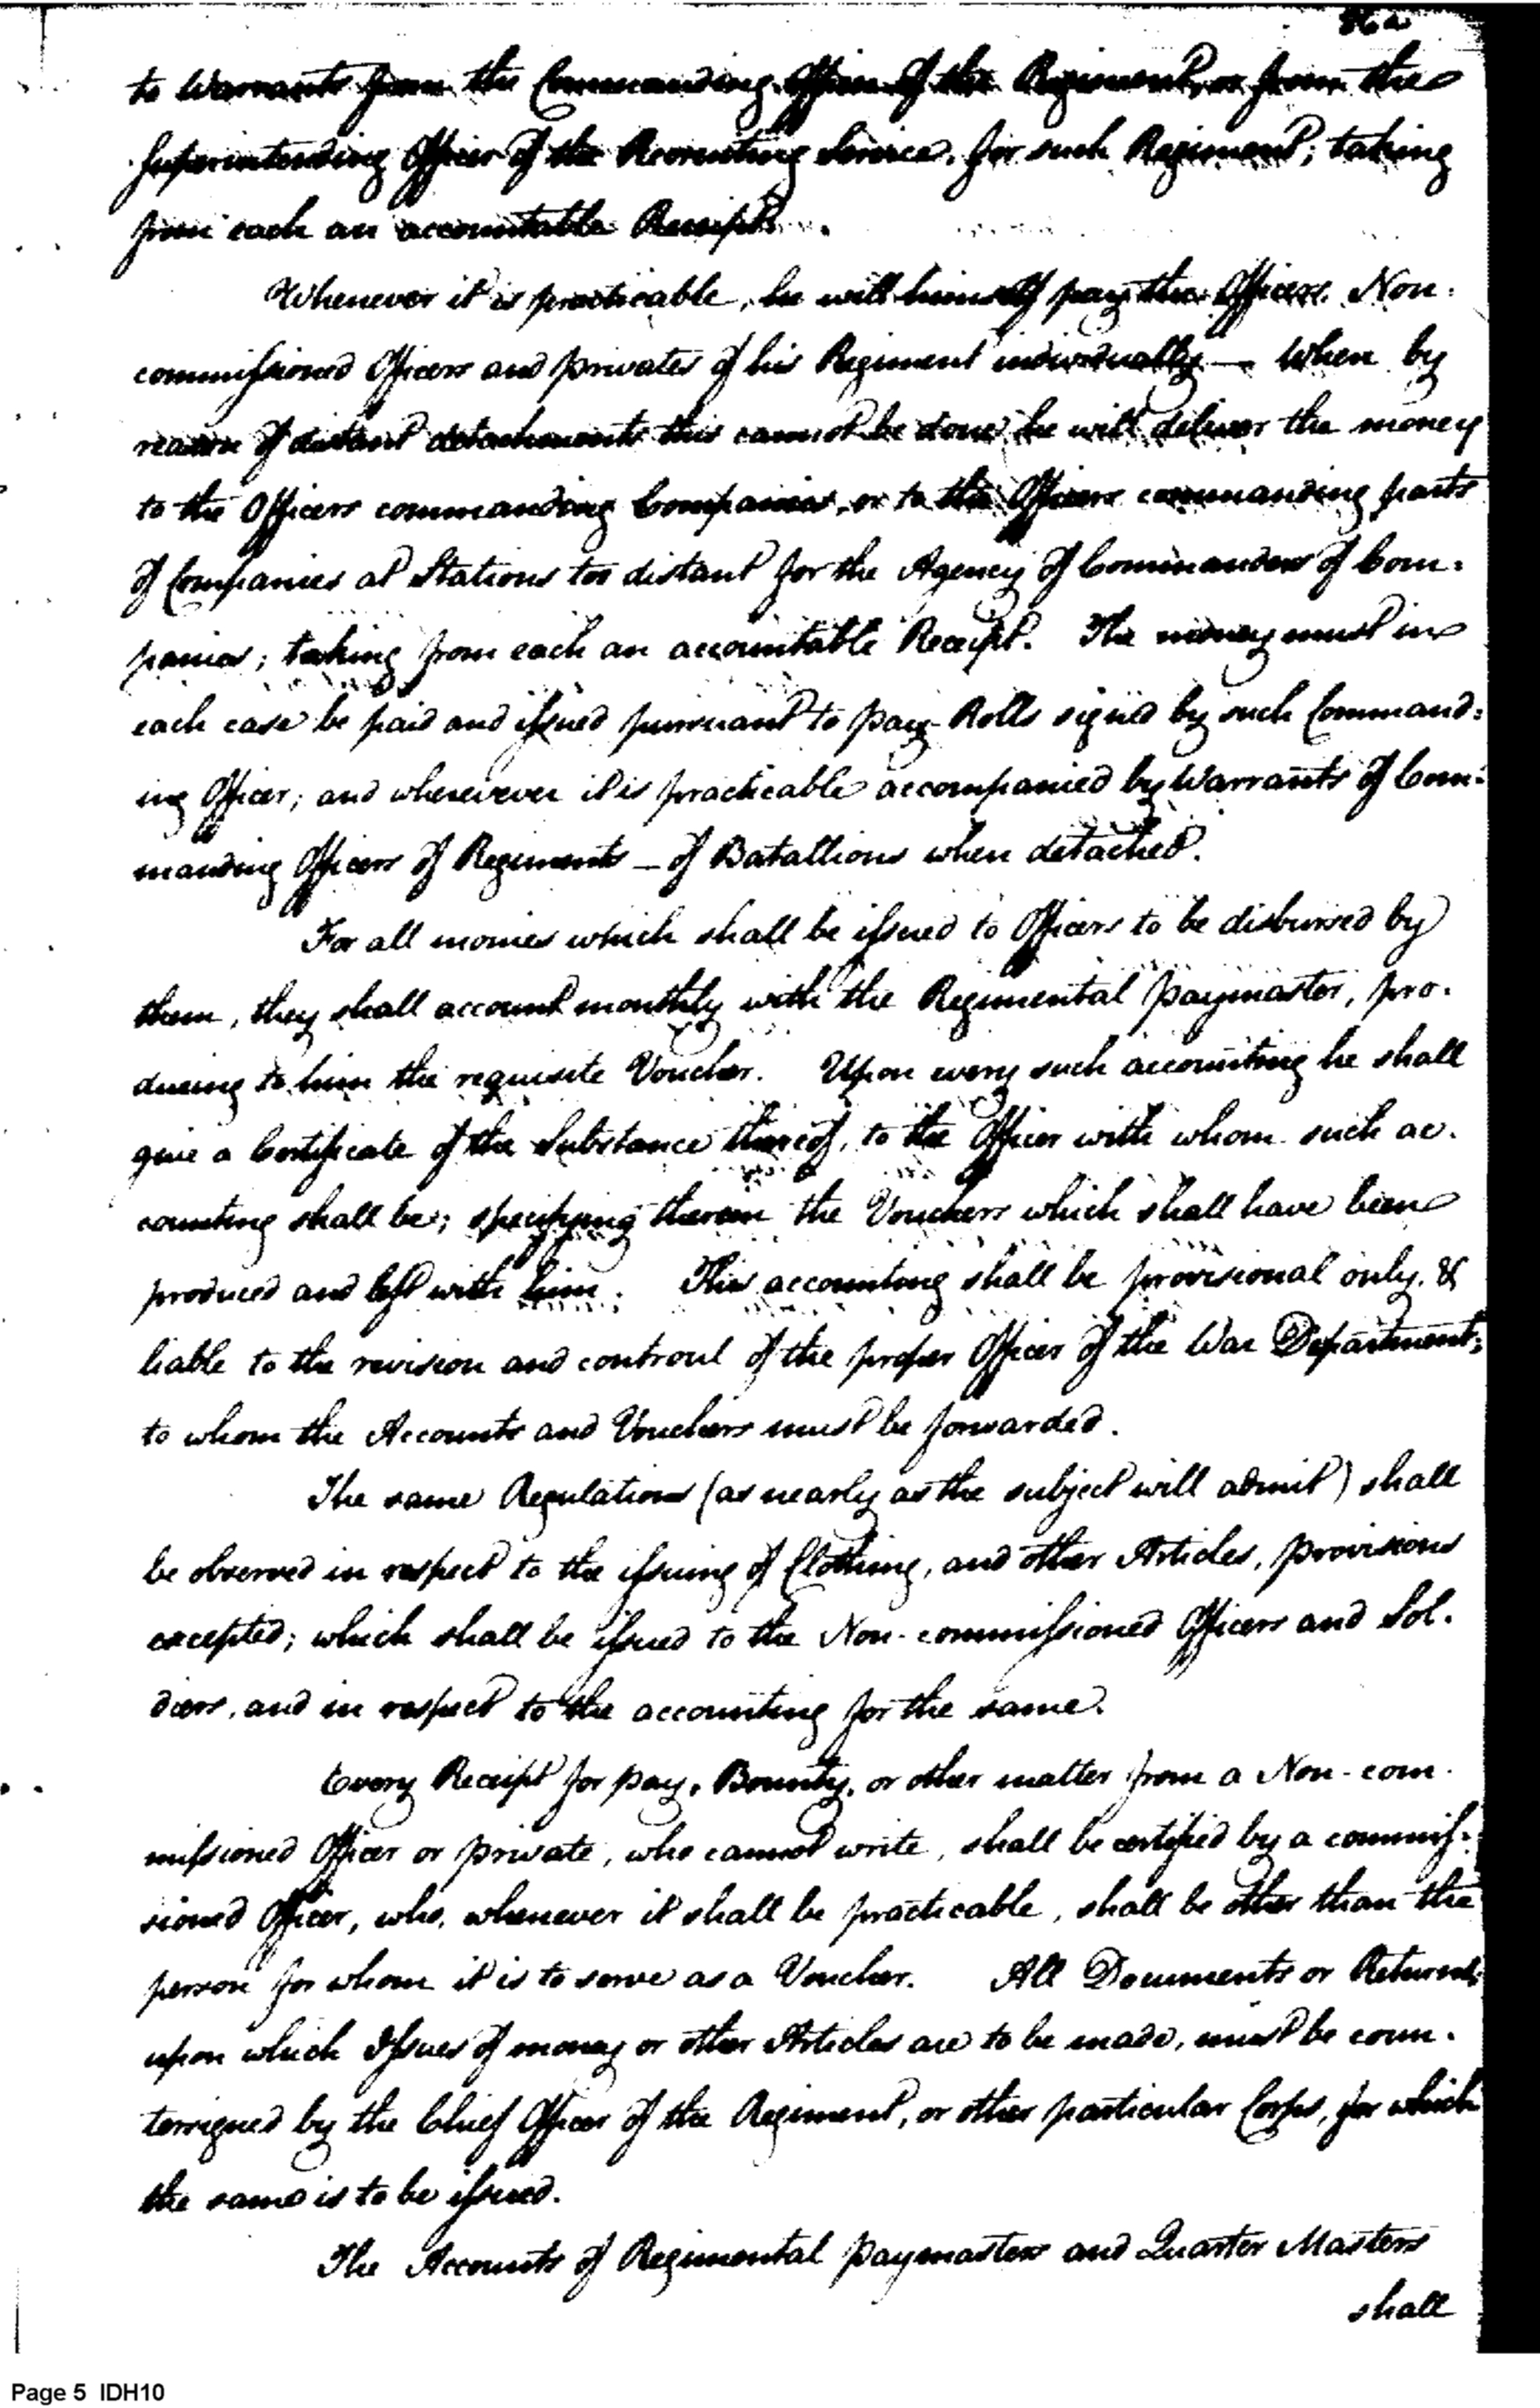 to Warrants from the Commanding Officer of the Regiment, or from the
Superintending Officer of the Recruiting Service, for such Regiment; taking
from each an accountable Receipt.
Whenever it is practicable, he will himself pay the Officers, Non-
commissioned Officers and privates of his Regiment individually — When by
reason of distant detachments this cannot be done he will deliver the money
to the Officers commanding Companies, or to the Officers commanding parts
of Companies at Stations too distant for the Agency of Commanders of Com:
panies; taking from each an accountable Receipt. The money must in
each case be paid and issued pursuant to pay-Rolls signed by such Command:
ing Officer; and wherever it is practicable accompanied by Warrants of Com:
manding Officers of Regiments — of Batallions when detached.
For all monies which shall be issued to Officers to be disbursed by
them, they shall account monthly with the Regimental paymaster, pro-
ducing to him the requisite Voucher. Upon every such accounting he shall
give a Certificate of the Substance thereof, to the Officer with whom such ac-
counting shall be; specifying therein the Vouchers which shall have been
produced and left with him. This accounting shall be provisional only, &
liable to the revision and controul of the proper Officer of the War Department;
to whom the Accounts and Vouchers must be forwarded.
The same Regulations (as nearly as the subject will admit) shall
be observed in respect to the issuing of Clothing, and other Articles, provisions
excepted; which shall be issued to the Non-commissioned Officers and Sol-
diers, and in respect to the accounting for the same.
Every Receipt for pay, Bounty, or other matter from a Non-com-
missioned Officer or private, who cannot write, shall be certified by a commis-
sioned Officer, who, whenever it shall be practicable, shall be other than the
person for whom it is to serve as a Voucher. All Documents or Returns,
upon which Issues of money or other Articles are to be made, must be coun-
tersigned by the Chief Officer of the Regiment, or other particular Corps, for which
the same is to be issued.
The Accounts of Regimental paymasters and Quarter Masters
shall
Page 5 IDH10